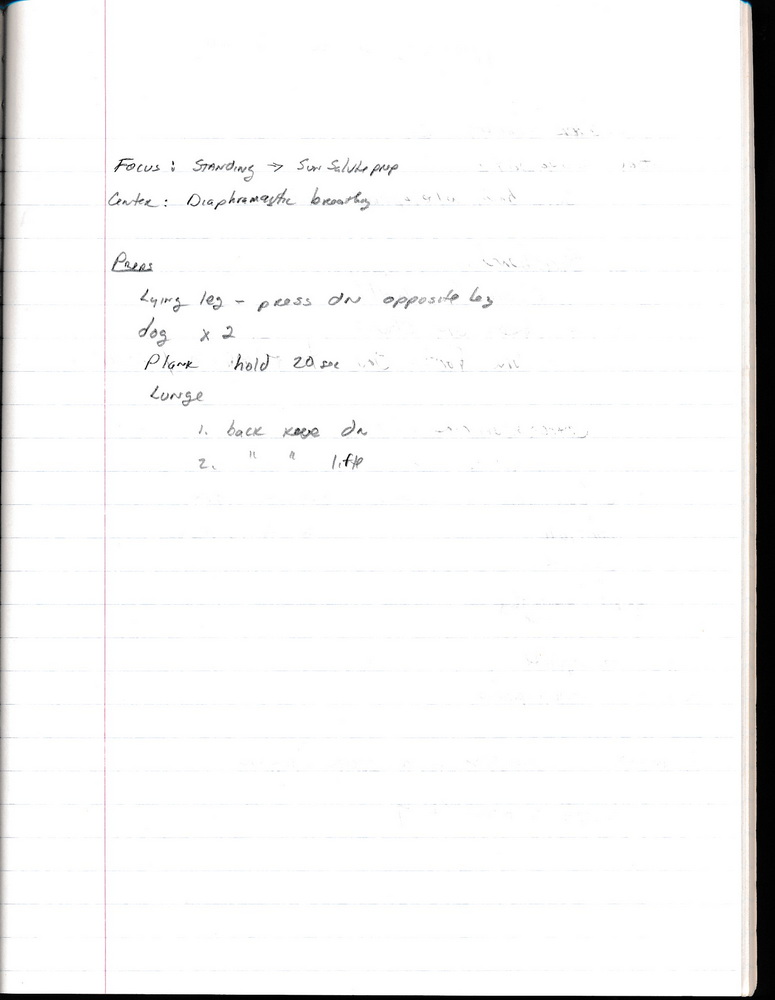 Focus: Standing → Sun Salute prep
Center: Diaphramagtic breathing
Preps
Lying leg - press dn opposite leg
dog x 2
Plank hold 20 sec
Lunge
1. back knee dn
2. " " lift